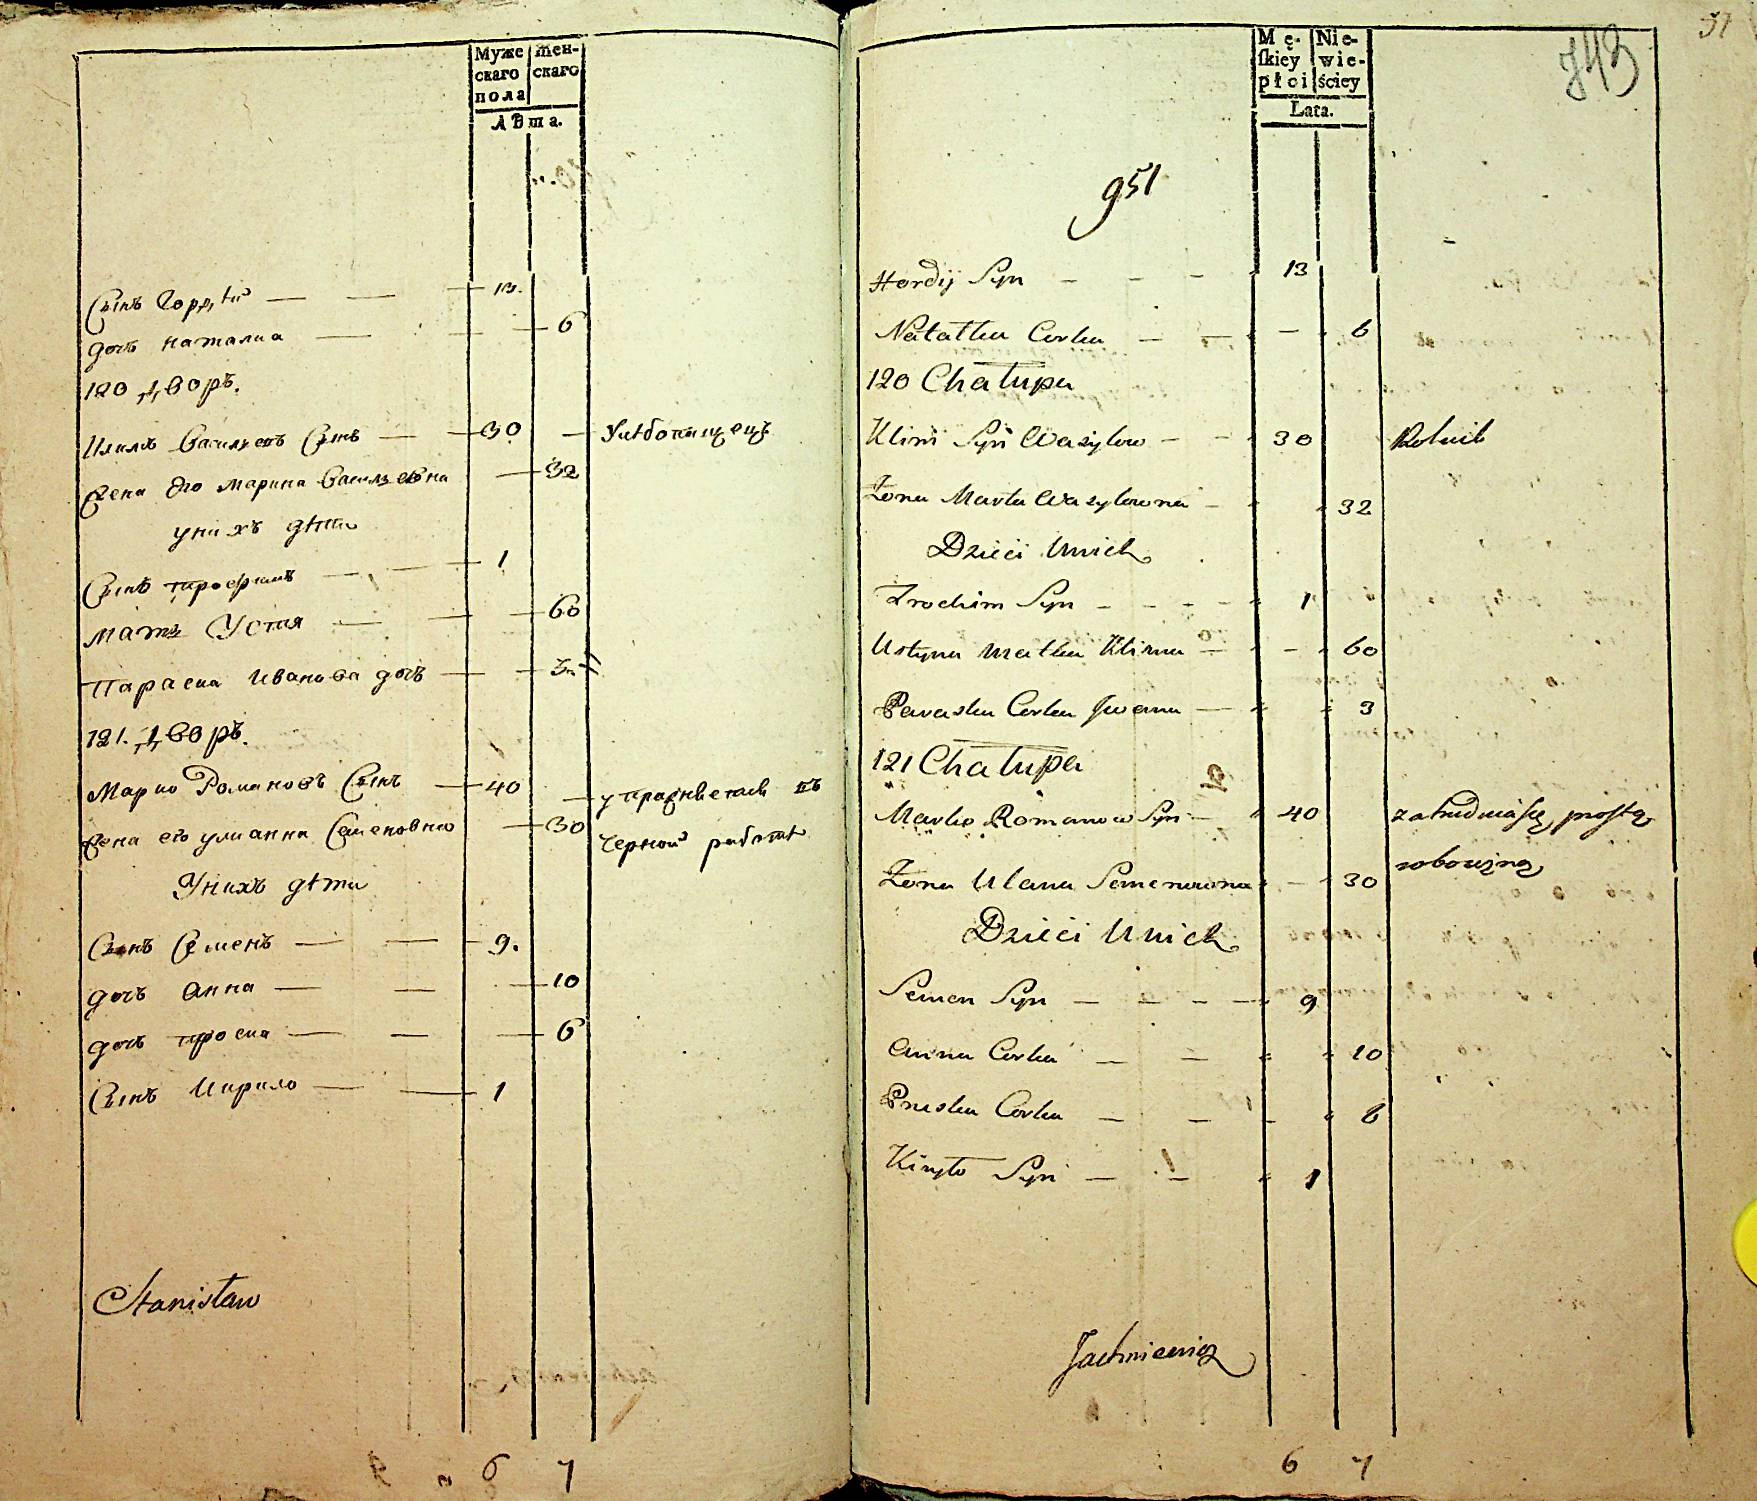 Муже
скаго
пола
жен-
скаго
Лѣта.
Сынъ Гордѣй — — 13.
дочь наталиа — — 6
120 дворъ.
Климъ Васильевъ Сынъ — 30 — Хлѣбопашецъ
Жена Его Марина Васильевна — 32
у нихъ дѣти
Сынъ трофимъ — 1
мать Устия — — 60
Параска Иванова дочь — 3
121. дворъ.
Марко Романовъ Сынъ — 40 — упражняется въ
Жена его улианна Семеновна — 30 черной работѣ
У нихъ дѣти
Сынъ Семенъ — — 9.
дочь Анна — — 10
дочь проска — — 6
Сынъ Кирило — — 1
Stanisław
6 7
57
743
Mę-
skiey
płci
Nie-
wie-
ściey
Lata.
951
Hordij Syn — — — 13
Natalka Corka — — — 6
120 Chałupa
Klim Syn Wasylow — — 30 Rolnik
Żona Marta Wasylowna — 32
Dzieci Unich
Trochim Syn — — — — 1
Ustyna Matka Klima — — 60
Paraska Corka Jwana — 3
121 Chałupa
Marko Romanow Syn — 40 zatrudnia się prostą
Żona Ulana Semenowna — 30 robocizną
Dzieci Unich
Semen Syn — — — — 9
Anna Corka — — 10
Pruska Corka — — — 6
Kiryło Syn — — 1
Jachniewicz
6 7